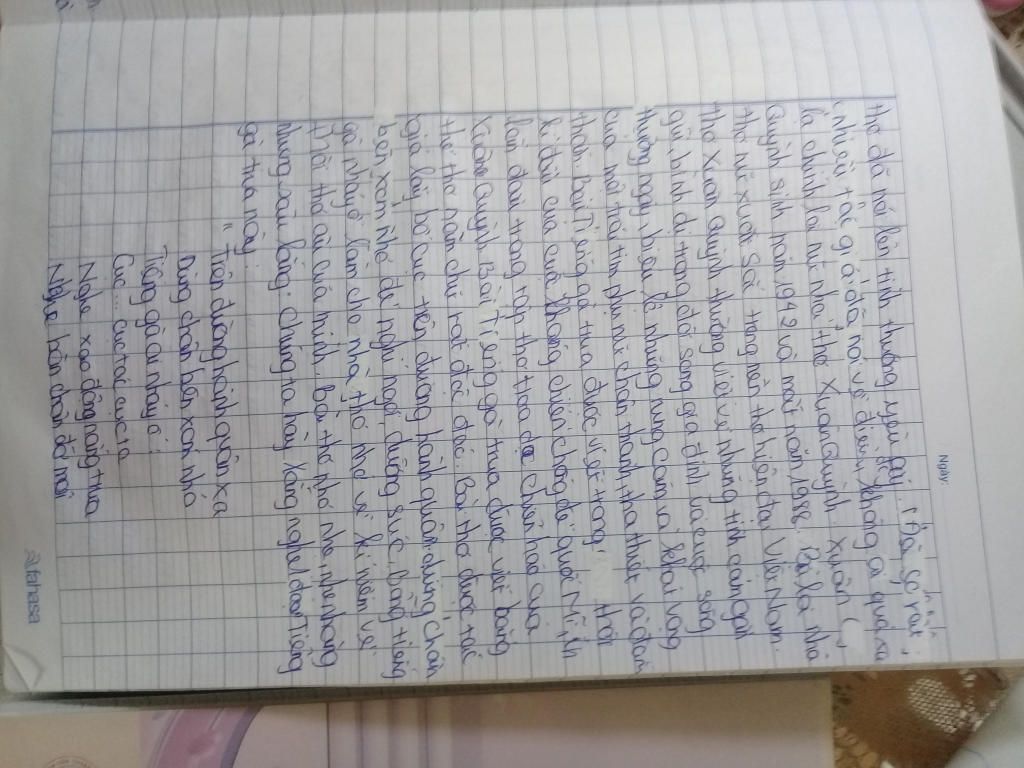 Ngày:
thơ đã nói lên tình thương yêu ấy. Đã có rất
nhiều tác giả đã nói về điều, không ai quá xa
là chính là nữ nhà thơ Xuân Quỳnh. Xuân
Quỳnh sinh năm 1942 và mất năm 1988. Bà là nhà
thơ nữ xuất sắc trong nền thơ hiện đại Việt Nam.
Thơ Xuân Quỳnh thường viết về những tình cảm gần
gũi bình dị trong đời sống gia đình và cuộc sống
thường ngày, biểu lộ những rung cảm và khát vọng
của một trái tim phụ nữ chân thành, tha thiết và đằm
thắm. Bài Tiếng gà trưa được viết trong thời
kì đầu của cuộc kháng chiến chống đế quốc Mĩ, in
lần đầu trong tập thơ Hoa dọc chiến hào của
Xuân Quỳnh. Bài Tiếng gà trưa được viết bằng
thể thơ năm chữ rất độc đáo. Bài thơ được tác
giả lấy bố cục trên đường hành quân, dừng chân
bên xóm nhỏ để nghỉ ngơi, dưỡng sức, bỗng tiếng
gà nhảy ổ làm cho nhà thơ nhớ về kỉ niệm về
thời thơ ấu của mình. Bài thơ nhỏ nhẹ, nhẹ nhàng
nhưng sâu lắng. Chúng ta hãy lắng nghe đoạn Tiếng
gà trưa này:
"Trên đường hành quân xa
Dừng chân bên xóm nhỏ
Tiếng gà ai nhảy ổ:
Cục... cục tác cục ta
Nghe xao động nắng trưa
Nghe bàn chân đỡ mỏi
lahasa